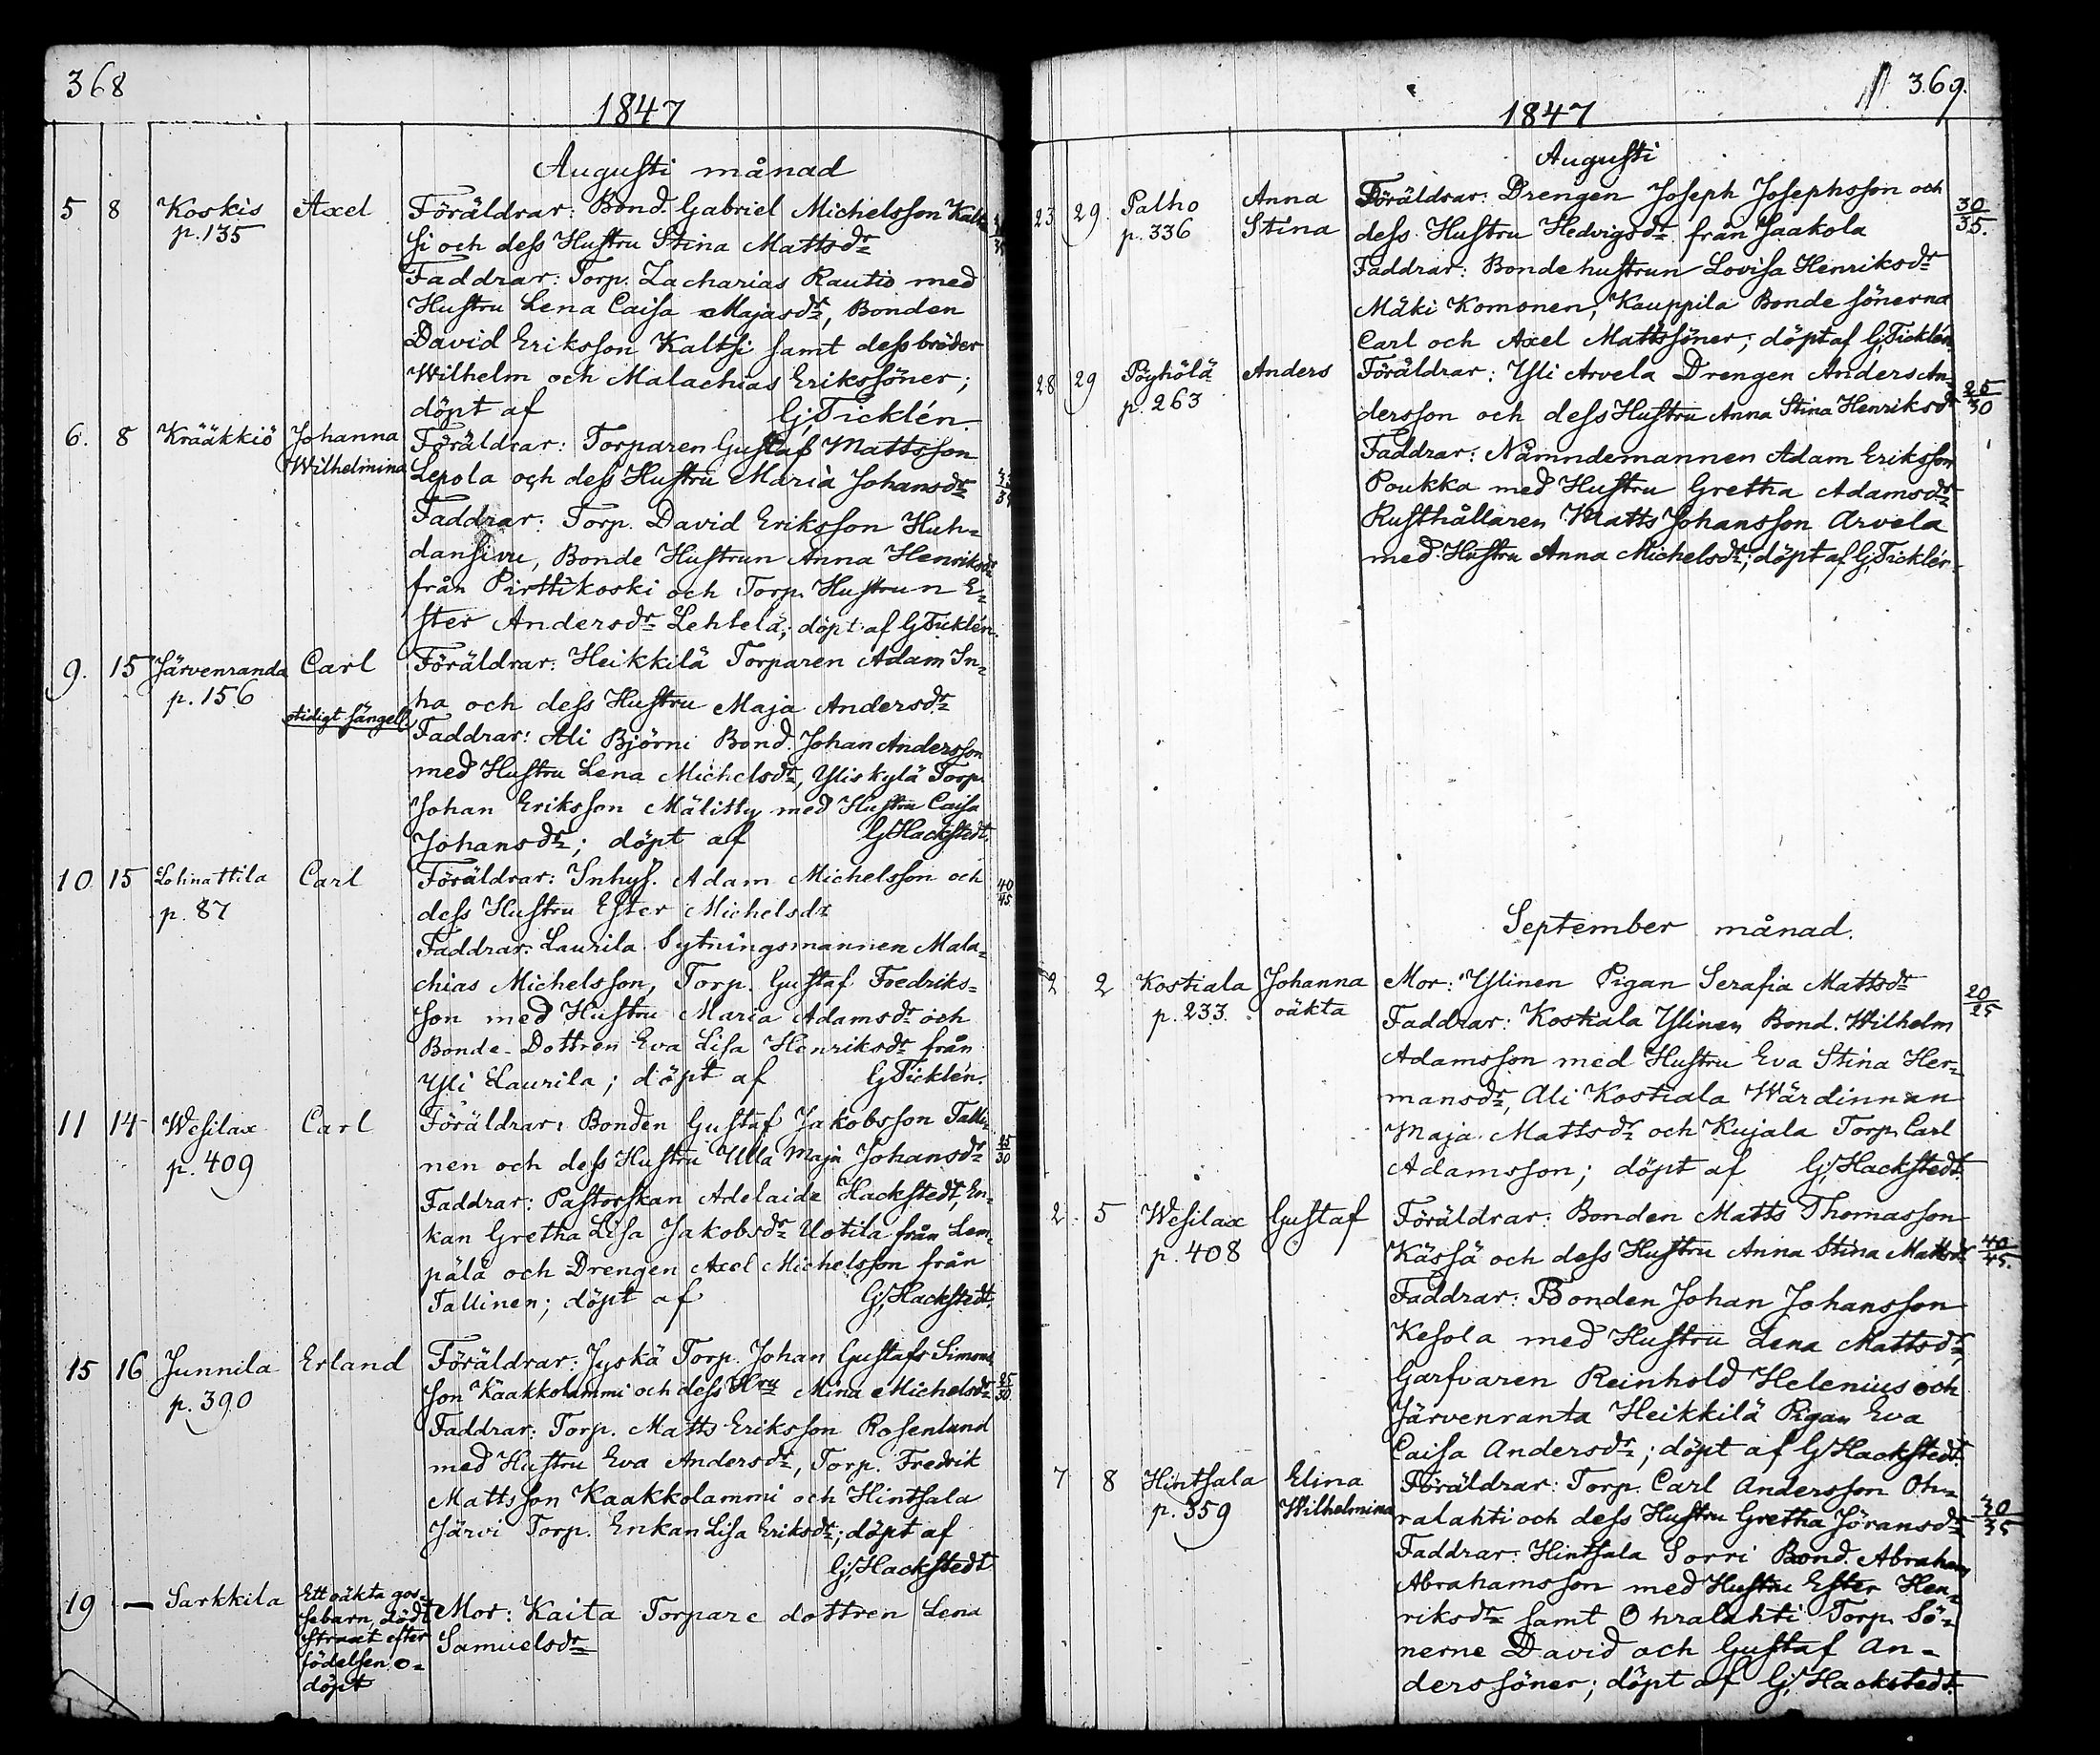 368
1847
Augusti månad
5 8 Koskis Axel Föräldrar: Bond. Gabriel Michelsson Kalt=
p. 135 si och dess Hustru Stina Mattsdr
Faddrar: Torp. Zacharias Rautio med
Hustru Lena Caisa Majasdr, Bonden
David Eriksson Kaltsi samt dess bröder
Wilhelm och Malachias Erikssöner;
döpt af G, Ticklén.
6. 8 Krääkkiö Johanna Föräldrar: Torparen Gustaf Mattsson
Wilhelmina Lepola och dess Hustru Maria Johansdr
Faddrar: Torp. David Eriksson Huh=
dansivu, Bonde Hustrun Anna Henriksdr
från Pirttikoski och Torp. Hustrun E=
ster Andersdr Lehtelä; döpt af G, Ticklén.
9. 15 Järvenranda Carl Föräldrar: Heikkilä Torparen Adam In=
p. 156 ha och dess Hustru Maja Andersdr
otidigt sängel. Faddrar: Ali Björni Bond. Johan Andersson
med Hustru Lena Michelsdr, Yliskylä Torp.
Johan Eriksson Mälitty med Hustru Caisa
Johansdr; döpt af G, Hackstedt.
10 15 Lohnattila Carl Föräldrar: Inhys. Adam Michelsson och 40
p. 87 dess Hustru Ester Michelsdr 45
Faddrar: Laurila Sytningsmannen Mala=
chias Michelsson, Torp. Gustaf Fredriks=
son med Hustru Maria Adamsdr och
Bonde-Dottren Eva Lisa Henriksdr från
Yli Laurila; döpt af G, Ticklén.
11 14 Wesilax Carl Föräldrar: Bonden Gustaf Jakobsson Talli= 25
p. 409 nen och dess Hustru Ulla Maja Johansdr 30
Faddrar: Pastorskan Adelaide Hackstedt, En=
kan Gretha Lisa Jakobsdr Uotila från Lem=
pälä och Drengen Axel Michelsson från
Tallinen; döpt af G, Hackstedt.
15 16 Junnila Erland Föräldrar: Jyskä Torp. Johan Gustafs Simons 25
p. 390 son Kaakkolammi och dess Hru Mina Michelsdr 30
Faddrar: Torp. Matts Eriksson Rosenlund
med Hustru Eva Andersdr, Torp. Fredrik
Mattsson Kaakkolammi och Hintsala
Järvi Torp. Enkan Lisa Eriksdr; döpt af
G, Hackstedt
19 — Sarkkila Ett oäkta gos=
sebarn, dödt Mor: Kaita Torpare dottren Lena
straxt efter Samuelsdr
födelsen o=
döpt
369.
1847
Augusti
23 29. Palho Anna Föräldrar: Drengen Joseph Josephsson och 30
p. 336 Stina dess Hustru Hedvigsdr från Jaakola 35.
Faddrar: Bonde hustrun Lovisa Henriksdr
Mäki Komonen, Kauppila Bonde sönerna
Carl och Axel Mattssöner; döpt af G, Ticklén.
28 29 Pöyhölä Anders Föräldrar: Yli Arvela Drengen Anders An= 25
p. 263 dersson och dess Hustru Anna Stina Henriksdr 30
Faddrar: Nämndemannen Adam Eriksson
Poukka med Hustru Gretha Adamsdr
Rusthållaren Matts Johansson Arvela
med Hustru Anna Michelsdr; döpt af G, Ticklén.
September månad.
2 2 Kostiala Johanna Mor: Ylinen Pigan Serafia Mattsdr 20
p. 233. oäkta Faddrar: Kostiala Ylinen Bond. Wilhelm 25
Adamsson med Hustru Eva Stina Her=
mansdr, Ali Kostiala Wärdinnan
Maja Mattsdr och Kujala Torp. Carl
Adamsson; döpt af G, Hackstedt.
2. 5 Wesilax Gustaf Föräldrar: Bonden Matts Thomasson 40
p. 408 Kässä och dess Hustru Anna Stina Mattsdr 45.
Faddrar: Bonden Johan Johansson
Kesola med Hustru Lena Mattsdr,
Garfvaren Reinhold Helenius och
Järvenranta Heikkilä Pigan Eva
Caisa Andersdr; döpt af G, Hackstedt.
7 8 Hintsala Elina Föräldrar: Torp. Carl Andersson Oh= 30
p. 359 Wilhelmina ralahti och dess Hustru Gretha Göransdr 35
Faddrar: Hintsala Sorri Bond. Abraham
Abrahamsson med Hustru Ester Hen=
riksdr samt Ohralahti Torp. Sö=
nerne David och Gustaf An=
derssöner; döpt af G, Hackstedt.